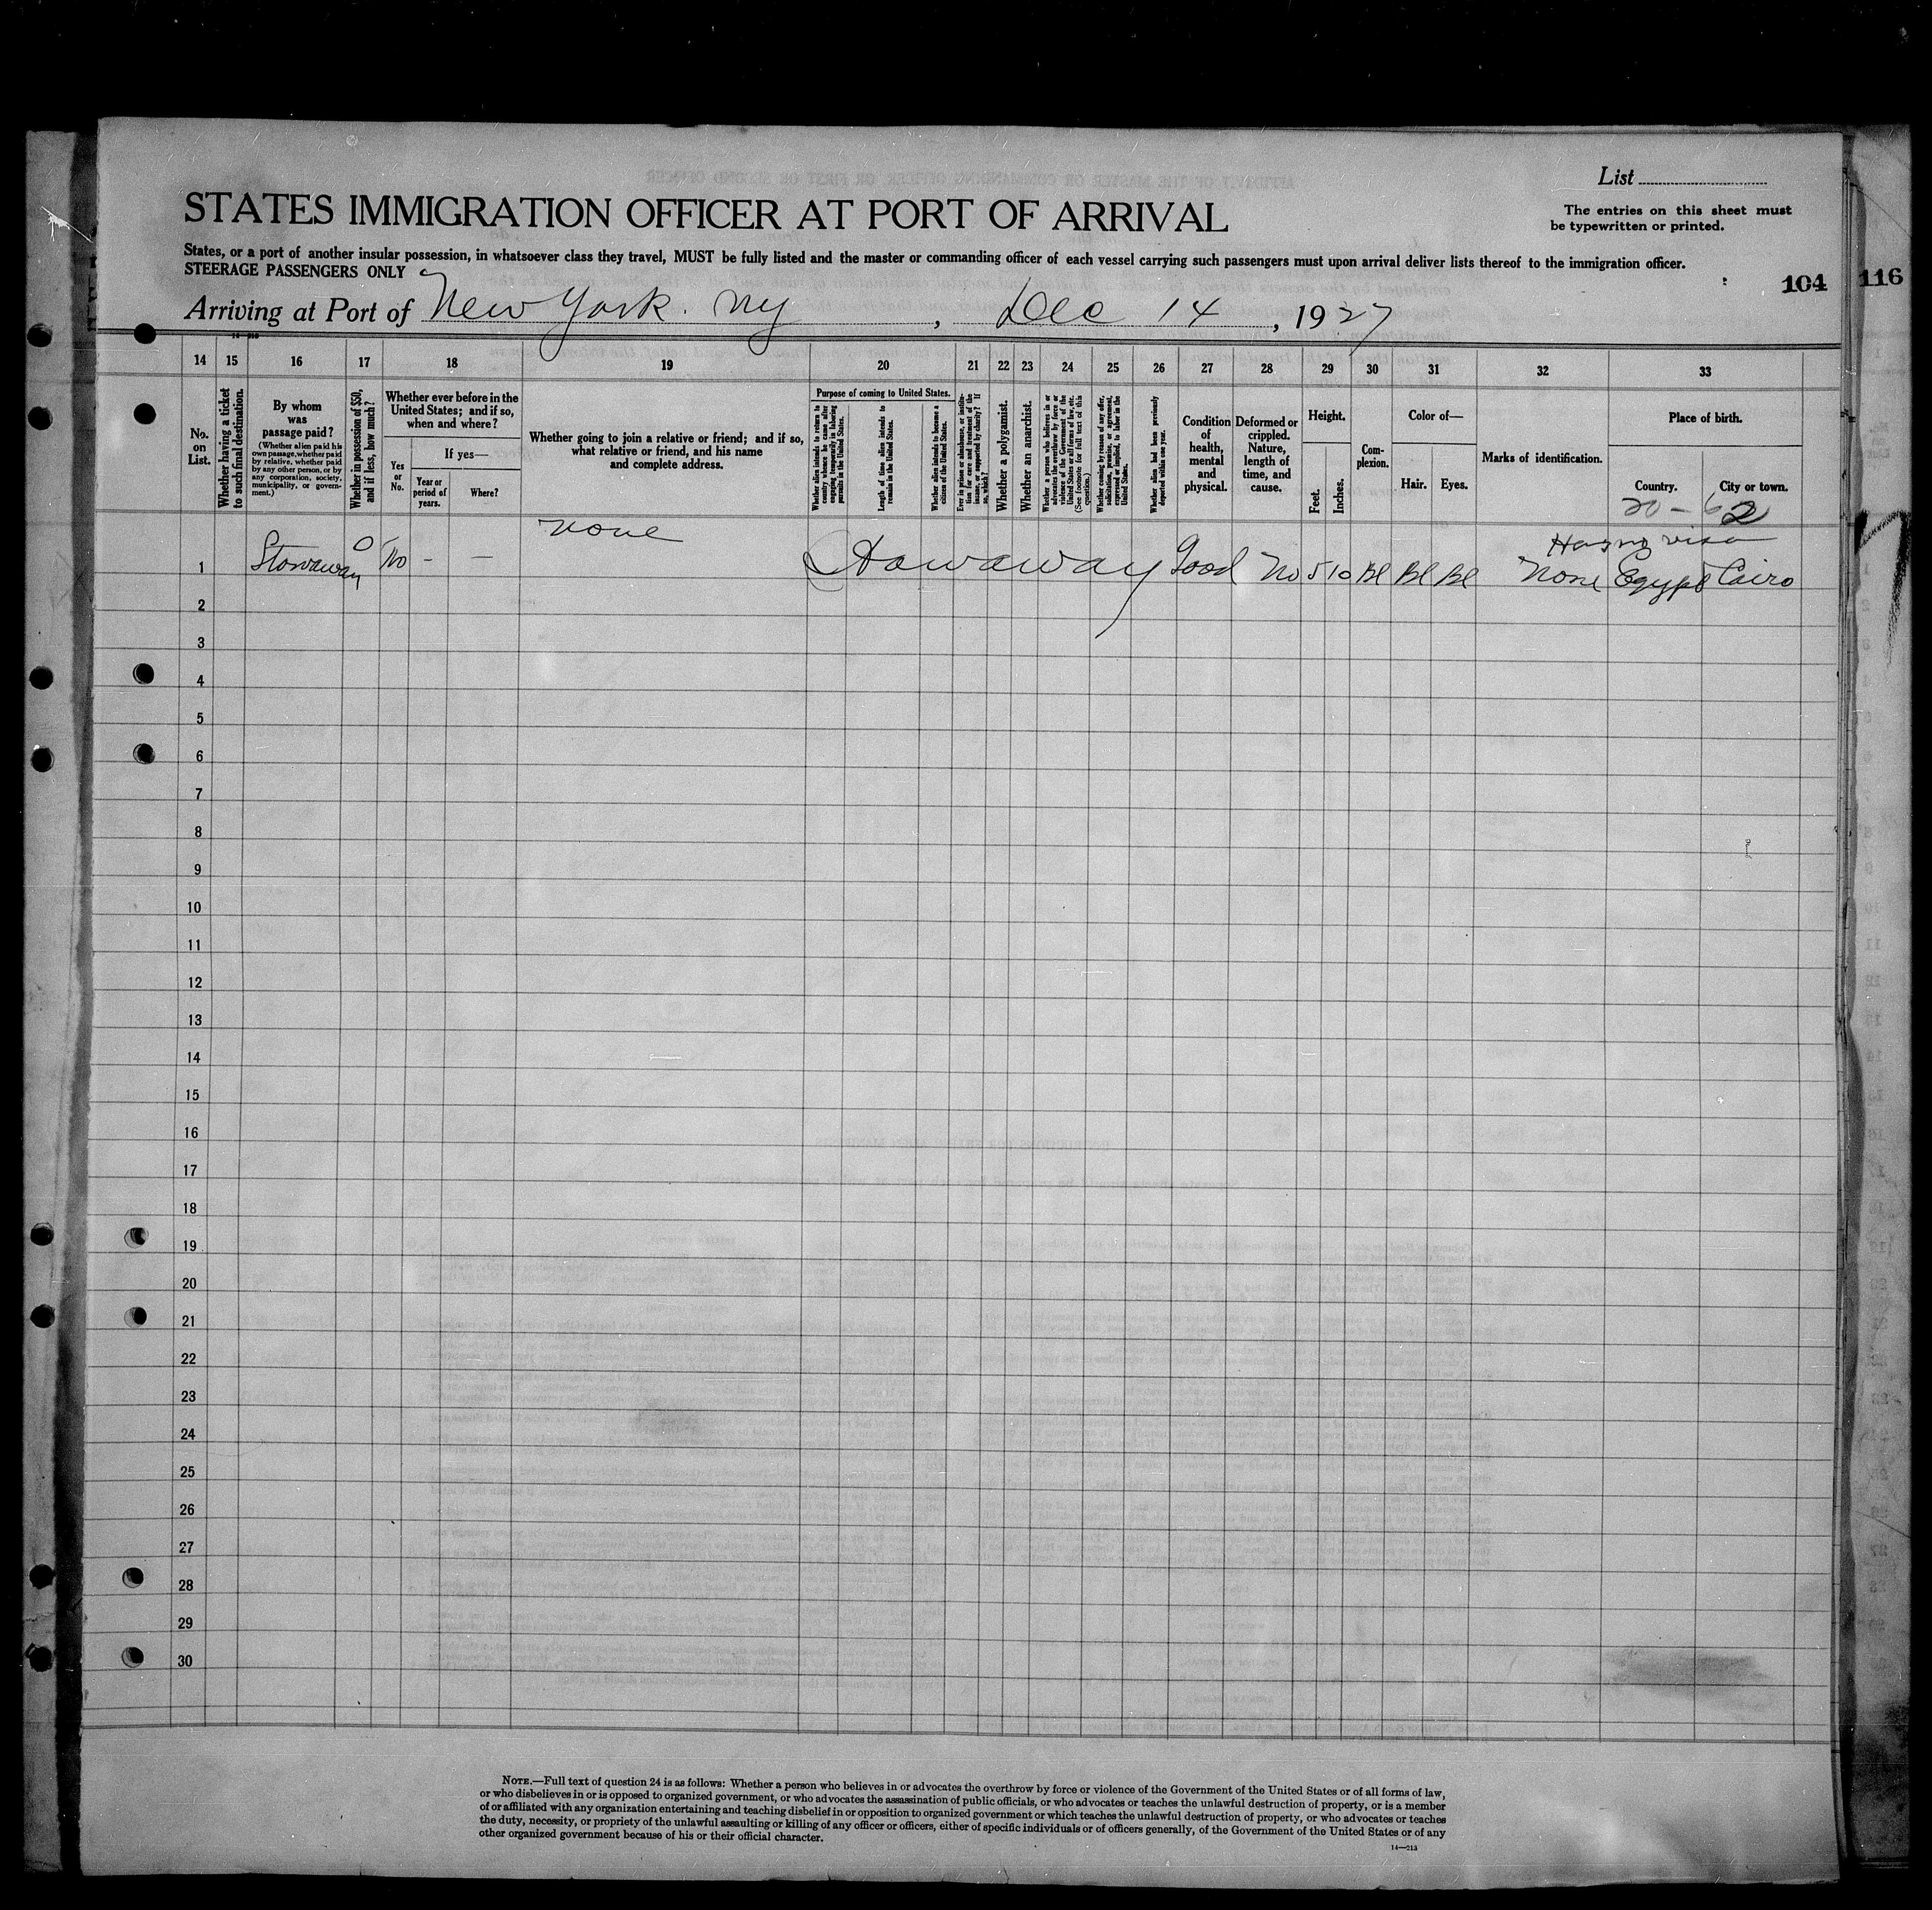 List
STATES IMMIGRATION OFFICER AT PORT OF ARRIVAL
The entries on this sheet must
be typewritten or printed.
States, or a port of another insular possession, in whatsoever class they travel, MUST be fully listed and the master or commanding officer of each vessel carrying such passengers must upon arrival deliver lists thereof to the immigration officer.
STEERAGE PASSENGERS ONLY
104
116
Arriving at Port of New York. Ny, Dec 14, 1927
14 15 16 17 18 19 20 21 22 23 24 25 26 27 28 29 30 31 32 33
No.
on
List.
Whether having a ticket
to such final destination.
By whom
was
passage paid?
(Whether alien paid his
own passage, whether paid
by relative, whether paid
by any other person, or by
any corporation, society,
municipality, or govern-
ment.)
Whether in possession of $50,
and if less, how much?
Whether ever before in the
United States; and if so,
when and where?
Yes
or
No.
If yes—
Year or
period of
years.
Where?
Whether going to join a relative or friend; and if so,
what relative or friend, and his name
and complete address.
Purpose of coming to United States.
Whether alien intends to return to
country whence he came after
engaging temporarily in laboring
pursuits in the United States.
Length of time alien intends to
remain in the United States.
Whether alien intends to become a
citizen of the United States.
Ever in prison or almshouse, or institu-
tion for care and treatment of the
insane, or supported by charity? If
so, which?
Whether a polygamist.
Whether an anarchist.
Whether a person who believes in or
advocates the overthrow by force or
violence of the Government of the
United States or all forms of law, etc.
(See footnote for full text of this
question.)
Whether coming by reason of any offer,
solicitation, promise, or agreement,
expressed or implied, to labor in the
United States.
Whether alien had been previously
deported within one year.
Condition
of
health,
mental
and
physical.
Deformed or
crippled.
Nature,
length of
time, and
cause.
Height.
Feet.
Inches.
Com-
plexion.
Color of—
Hair.
Eyes.
Marks of identification.
Place of birth.
Country.
City or town.
20-62
none
Has no visa
1 Stowaway 0 No - - Stowaway Good No 5 10 Bl Bl Bl None Egypt Cairo
2
3
4
5
6
7
8
9
10
11
12
13
14
15
16
17
18
19
20
21
22
23
24
25
26
27
28
29
30
NOTE.—Full text of question 24 is as follows: Whether a person who believes in or advocates the overthrow by force or violence of the Government of the United States or of all forms of law,
or who disbelieves in or is opposed to organized government, or who advocates the assassination of public officials, or who advocates or teaches the unlawful destruction of property, or is a member
of or affiliated with any organization entertaining and teaching disbelief in or opposition to organized government or which teaches the unlawful destruction of property, or who advocates or teaches
the duty, necessity, or propriety of the unlawful assaulting or killing of any officer or officers, either of specific individuals or of officers generally, of the Government of the United States or of any
other organized government because of his or their official character.
14—213